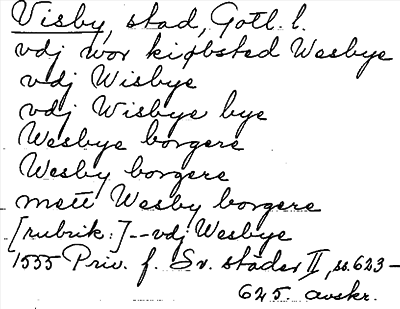 Visby, stad, Gotl. l.
vdj wor kiøbsted Wesbye
vdj Wisbye
vdj Wisbye bye
Wesbye borgere
Wesby borgere
mett Wesby borgere
[rubrik:]--vdj Wesbye
1555 Priv. f. Sv. städer II, ss. 623-
625. avskr.